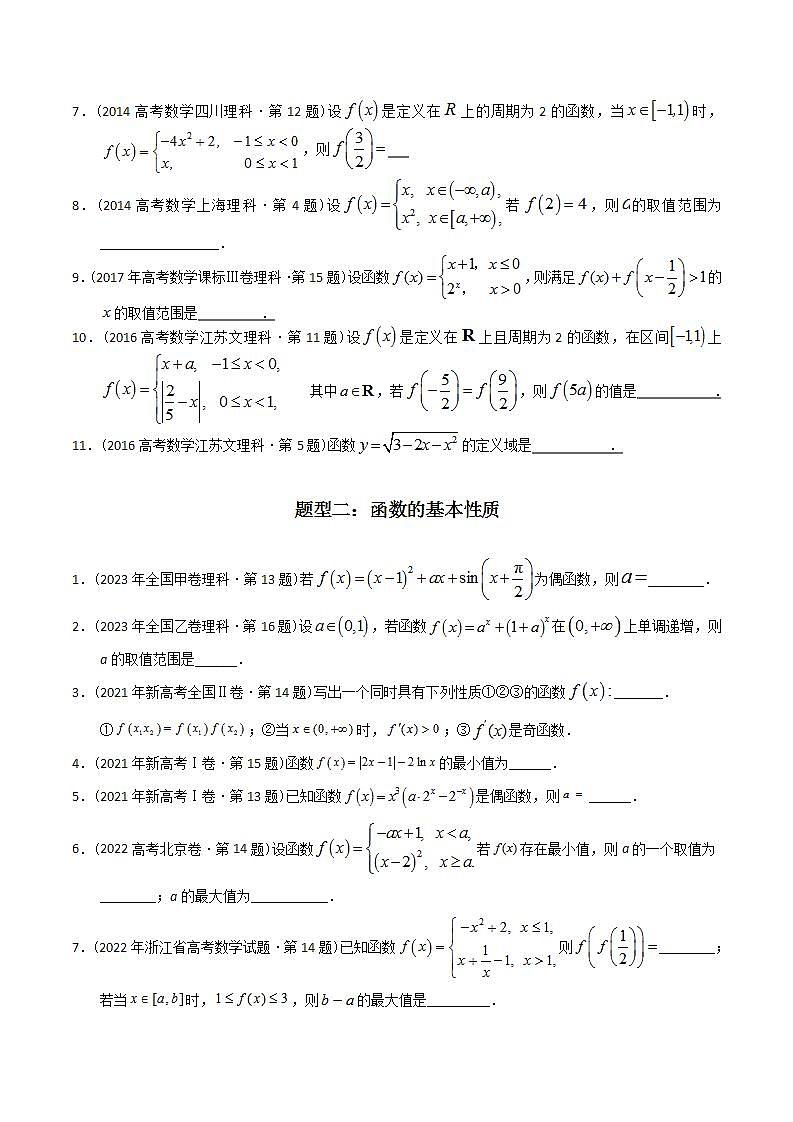 7.(2014高考数学四川理科·第12题)设f(x)是定义在R上的周期为2的函数，当x∈[−1,1)时，
f(x)={−4x²+2, −1≤x<0
x, 0≤x<1 ，则f(3/2)=___
8.(2014高考数学上海理科·第4题)设f(x)={x, x∈(−∞,a),
x², x∈[a,+∞), 若f(2)=4，则a的取值范围为
_________________.
9.(2017年高考数学课标Ⅲ卷理科·第15题)设函数f(x)={x+1，x≤0
2ˣ，x>0 ,则满足f(x)+f(x−1/2)>1的
x的取值范围是_________.
10.(2016高考数学江苏文理科·第11题)设f(x)是定义在R上且周期为2的函数，在区间[−1,1)上
f(x)={x+a, −1≤x<0,
|2/5−x|, 0≤x<1, 其中a∈R，若f(−5/2)=f(9/2)，则f(5a)的值是___________.
11.(2016高考数学江苏文理科·第5题)函数y=√(3−2x−x²)的定义域是___________.
题型二：函数的基本性质
1.(2023年全国甲卷理科·第13题)若f(x)=(x−1)²+ax+sin(x+π/2)为偶函数，则a=________.
2.(2023年全国乙卷理科·第16题)设a∈(0,1)，若函数f(x)=aˣ+(1+a)ˣ在(0,+∞)上单调递增，则
a的取值范围是______.
3.(2021年新高考全国Ⅱ卷·第14题)写出一个同时具有下列性质①②③的函数f(x):_______.
①f(x₁x₂)=f(x₁)f(x₂)；②当x∈(0,+∞)时，f′(x)>0；③f′(x)是奇函数.
4.(2021年新高考Ⅰ卷·第15题)函数f(x)=|2x−1|−2lnx的最小值为______.
5.(2021年新高考Ⅰ卷·第13题)已知函数f(x)=x³(a·2ˣ−2⁻ˣ)是偶函数，则a=______.
6.(2022高考北京卷·第14题)设函数f(x)={−ax+1, x<a,
(x−2)², x≥a. 若f(x)存在最小值，则a的一个取值为
________；a的最大值为___________.
7.(2022年浙江省高考数学试题·第14题)已知函数f(x)={−x²+2, x≤1,
x+1/x−1, x>1, 则f(f(1/2))=________；
若当x∈[a,b]时，1≤f(x)≤3，则b−a的最大值是_________.